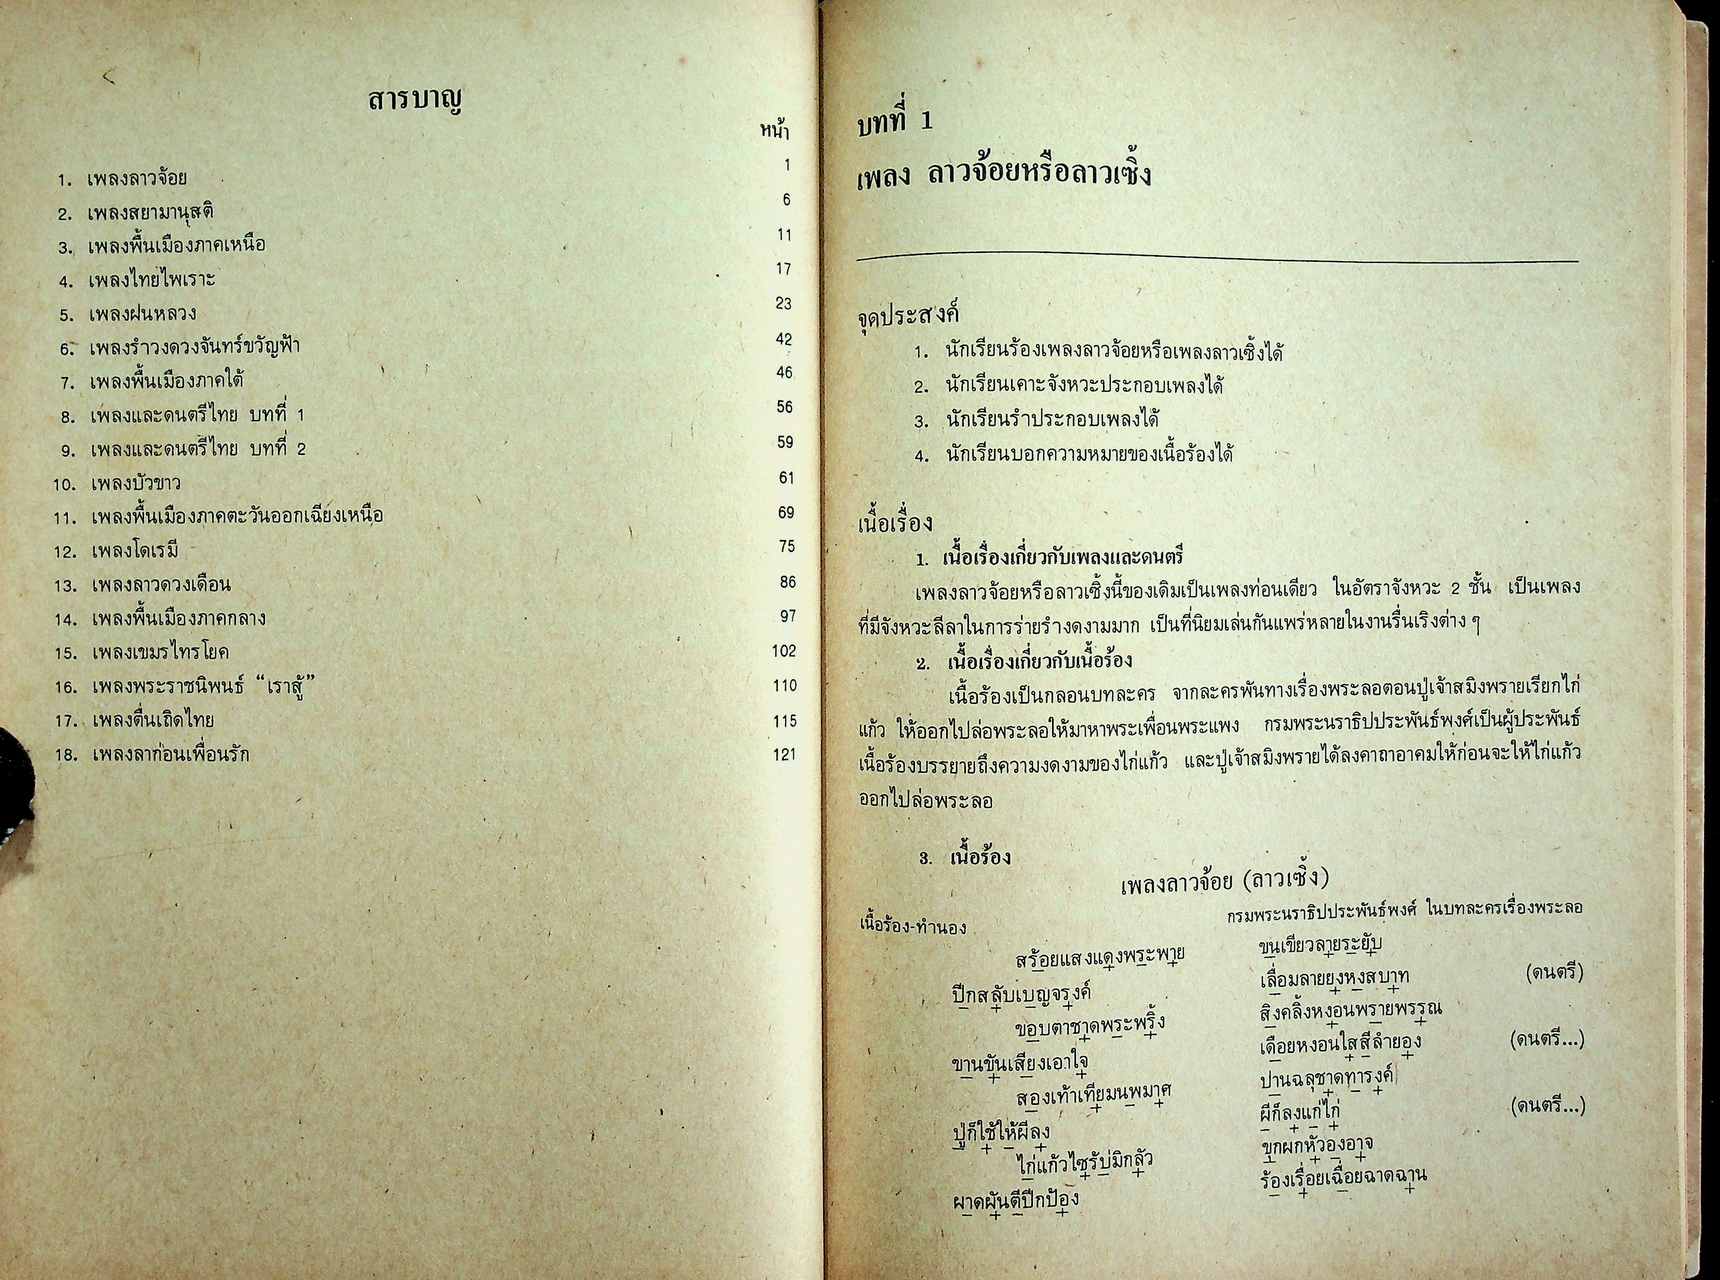 สารบาญ
หน้า
1. เพลงลาวจ้อย 1
2. เพลงสยามานุสติ 6
3. เพลงพื้นเมืองภาคเหนือ 11
4. เพลงไทยไพเราะ 17
5. เพลงฝนหลวง 23
6. เพลงรำวงดวงจันทร์ขวัญฟ้า 42
7. เพลงพื้นเมืองภาคใต้ 46
8. เพลงและดนตรีไทย บทที่ 1 56
9. เพลงและดนตรีไทย บทที่ 2 59
10. เพลงบัวขาว 61
11. เพลงพื้นเมืองภาคตะวันออกเฉียงเหนือ 69
12. เพลงโดเรมี 75
13. เพลงลาวดวงเดือน 86
14. เพลงพื้นเมืองภาคกลาง 97
15. เพลงเขมรไทรโยค 102
16. เพลงพระราชนิพนธ์ “เราสู้” 110
17. เพลงตื่นเถิดไทย 115
18. เพลงลาก่อนเพื่อนรัก 121
บทที่ 1
เพลง ลาวจ้อยหรือลาวเซิ้ง
จุดประสงค์
1. นักเรียนร้องเพลงลาวจ้อยหรือเพลงลาวเซิ้งได้
2. นักเรียนเคาะจังหวะประกอบเพลงได้
3. นักเรียนรำประกอบเพลงได้
4. นักเรียนบอกความหมายของเนื้อร้องได้
เนื้อเรื่อง
1. เนื้อเรื่องเกี่ยวกับเพลงและดนตรี
เพลงลาวจ้อยหรือลาวเซิ้งนี้ของเดิมเป็นเพลงท่อนเดียว ในอัตราจังหวะ 2 ชั้น เป็นเพลง
ที่มีจังหวะลีลาในการร่ายรำงดงามมาก เป็นที่นิยมเล่นกันแพร่หลายในงานรื่นเริงต่าง ๆ
2. เนื้อเรื่องเกี่ยวกับเนื้อร้อง
เนื้อร้องเป็นกลอนบทละคร จากละครพันทางเรื่องพระลอตอนปู่เจ้าสมิงพรายเรียกไก่
แก้ว ให้ออกไปล่อพระลอให้มาหาพระเพื่อนพระแพง กรมพระนราธิปประพันธ์พงศ์เป็นผู้ประพันธ์
เนื้อร้องบรรยายถึงความงดงามของไก่แก้ว และปู่เจ้าสมิงพรายได้ลงคาถาอาคมให้ก่อนจะให้ไก่แก้ว
ออกไปล่อพระลอ
3. เนื้อร้อง
เพลงลาวจ้อย (ลาวเซิ้ง)
เนื้อร้อง-ทำนอง กรมพระนราธิปประพันธ์พงศ์ ในบทละครเรื่องพระลอ
สร้อยแสงแดงพระพาย ขนเขียวลายระยับ
ปีกสลับเบญจรงค์ เลื่อมลายยงหงสบาท (ดนตรี)
ขอบตาชาดพระพริ้ง สิงคลิ้งหงอนพรายพรรณ
ขานขันเสียงเอาใจ เดือยหงอนใสสีลำยอง (ดนตรี...)
สองเท้าเทียมนพมาศ ปานฉลุชาดทารงค์
ปู่ก็ใช้ให้ผีลง ผีก็ลงแก่ไก่ (ดนตรี...)
ไก่แก้วไซร้บ่มิกลัว ขุกผกหัวองอาจ
ผาดผันตีปีกป้อง ร้องเรื่อยเฉื่อยฉาดฉาน